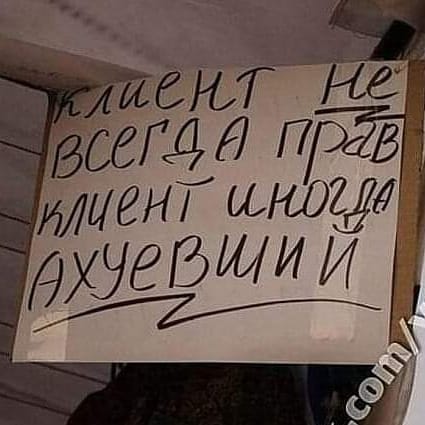 клиент не
всегда прав
клиент иногда
АХУеВШИЙ
.com/